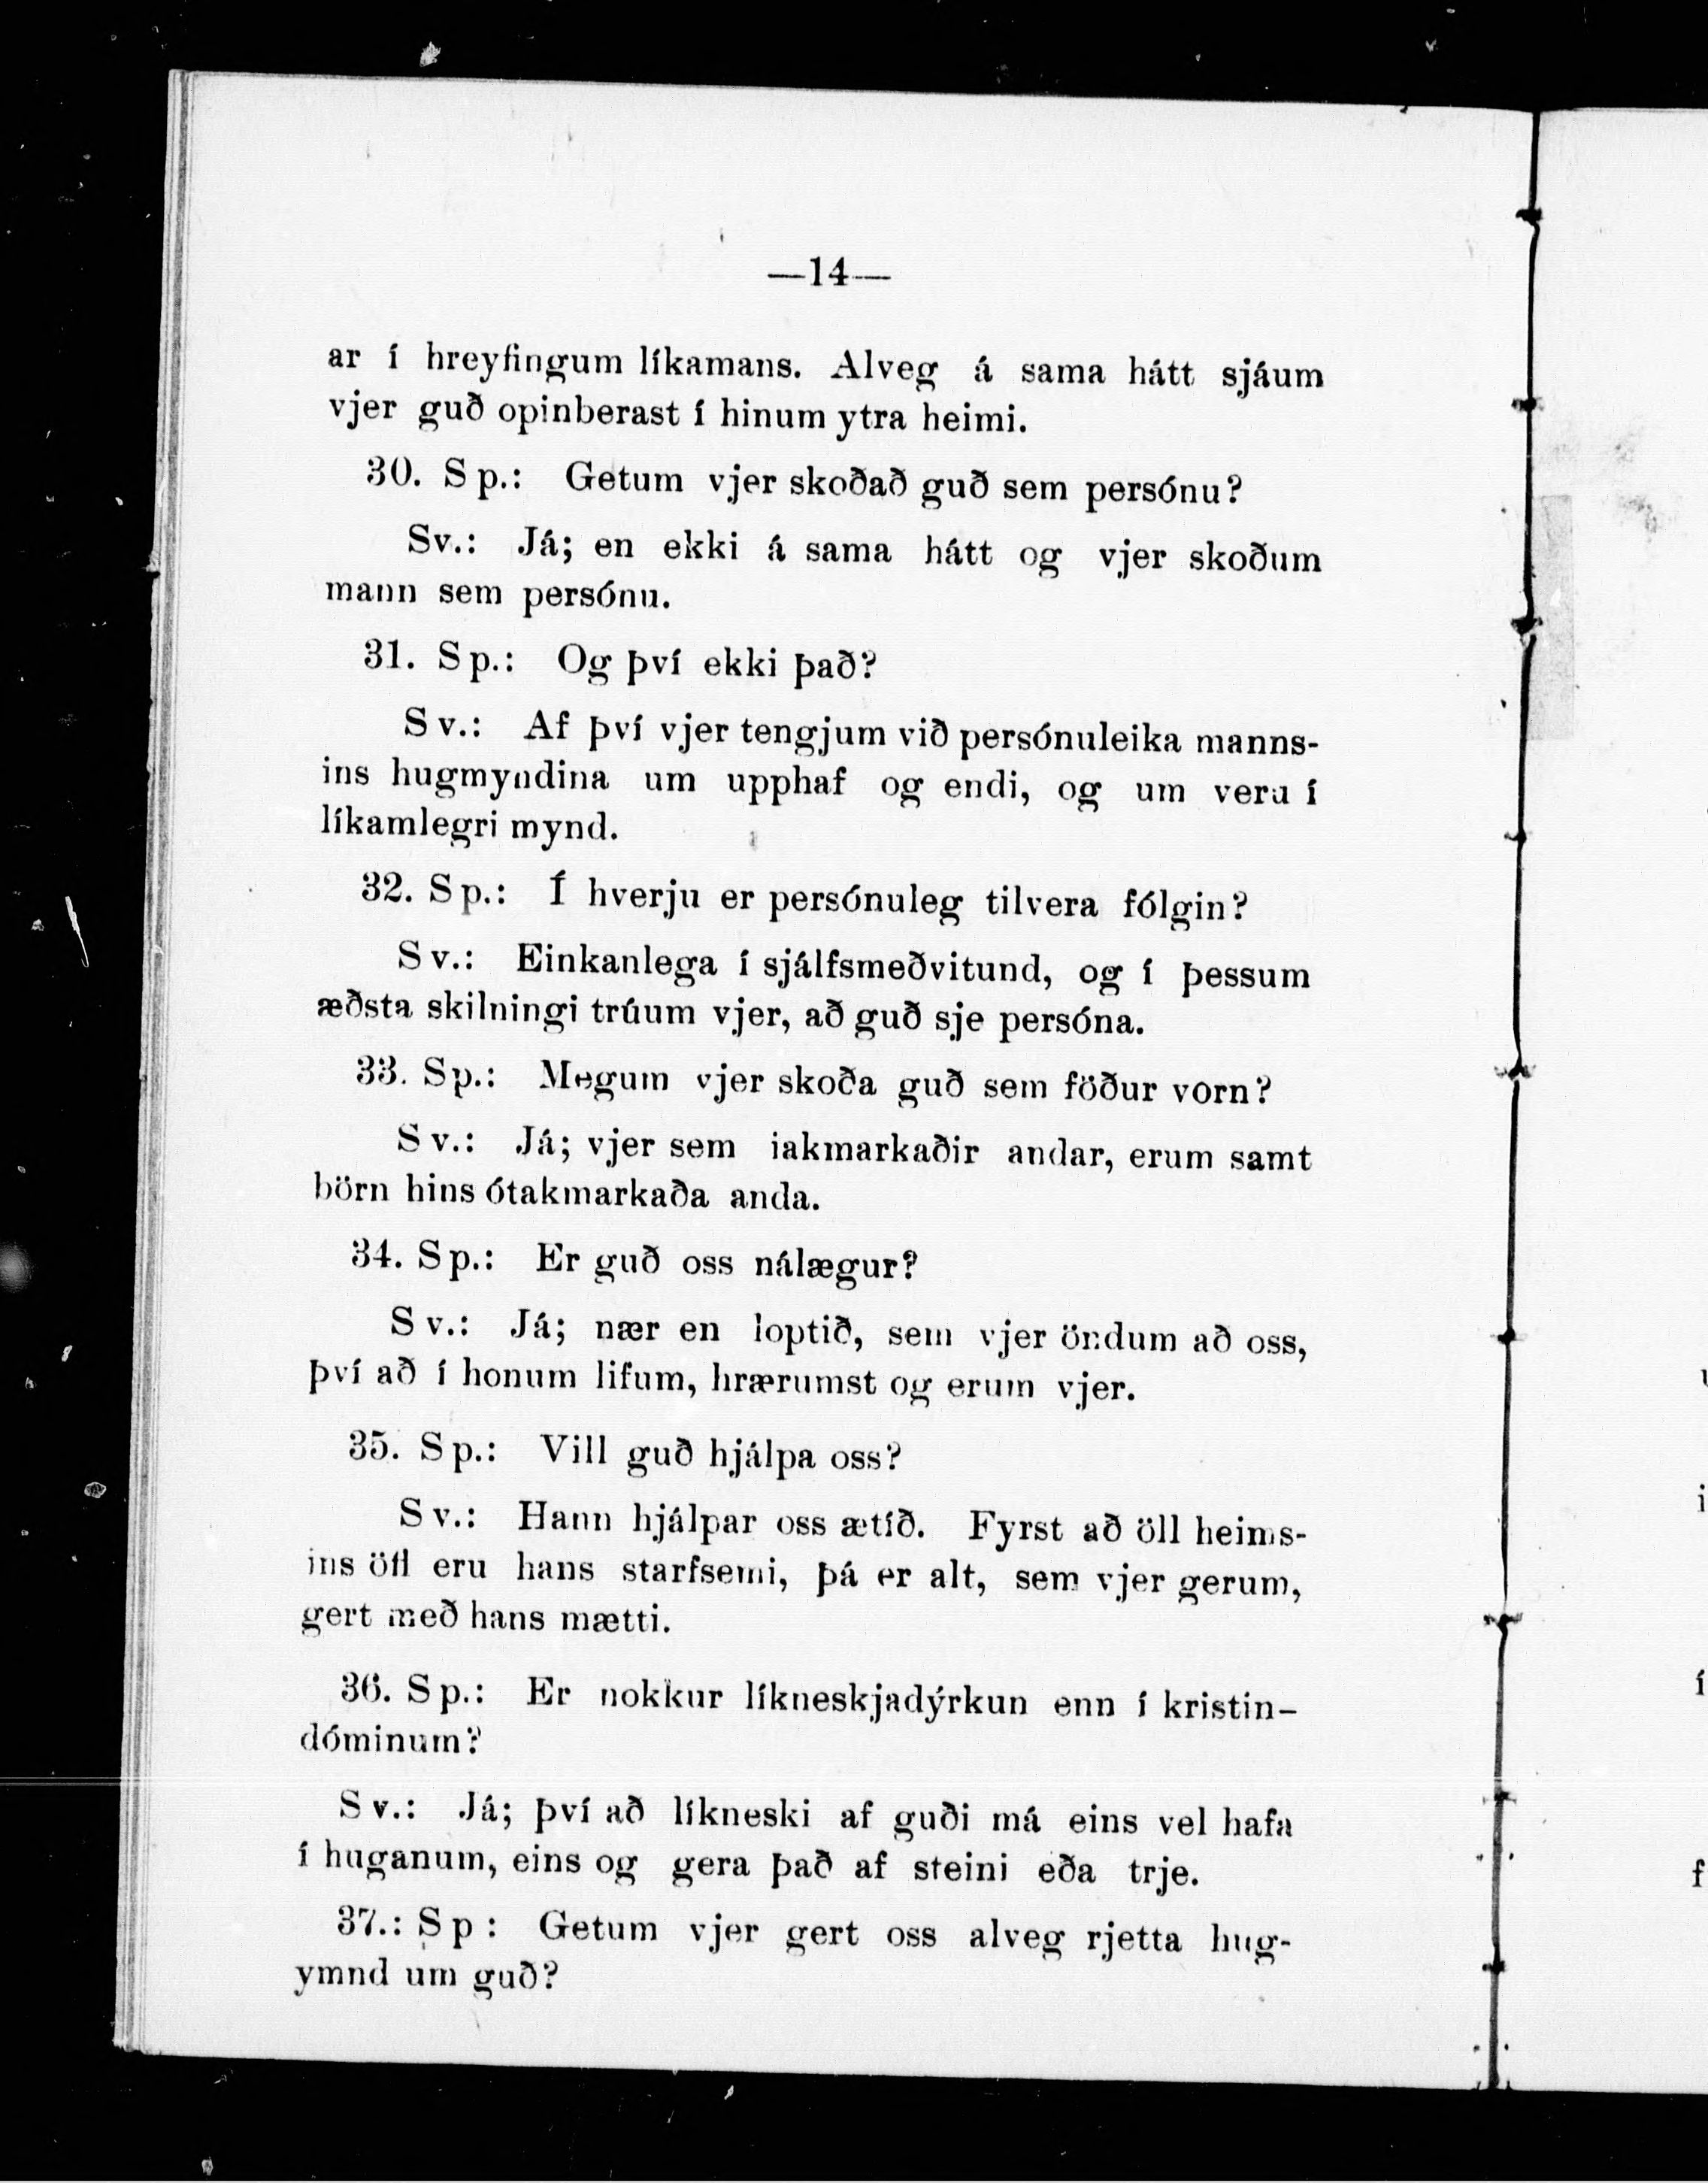 —14—
ar í hreyfingum líkamans. Alveg á sama hátt sjáum
vjer guð opinberast í hinum ytra heimi.
30. Sp.: Getum vjer skoðað guð sem persónu?
Sv.: Já; en ekki á sama hátt og vjer skoðum
mann sem persónu.
31. Sp.: Og því ekki það?
Sv.: Af því vjer tengjum við persónuleika manns-
ins hugmyndina um upphaf og endi, og um veru í
líkamlegri mynd.
32. Sp.: Í hverju er persónuleg tilvera fólgin?
Sv.: Einkanlega í sjálfsmeðvitund, og í þessum
æðsta skilningi trúum vjer, að guð sje persóna.
33. Sp.: Megum vjer skoða guð sem föður vorn?
Sv.: Já; vjer sem iakmarkaðir andar, erum samt
börn hins ótakmarkaða anda.
34. Sp.: Er guð oss nálægur?
Sv.: Já; nær en loptið, sem vjer öndum að oss,
því að í honum lifum, hrærumst og erum vjer.
35. Sp.: Vill guð hjálpa oss?
Sv.: Hann hjálpar oss ætíð. Fyrst að öll heims-
ins öfl eru hans starfsemi, þá er alt, sem vjer gerum,
gert með hans mætti.
36. Sp.: Er nokkur líkneskjadýrkun enn í kristin-
dóminum?
Sv.: Já; því að líkneski af guði má eins vel hafa
í huganum, eins og gera það af steini eða trje.
37.: Sp: Getum vjer gert oss alveg rjetta hug-
ymnd um guð?